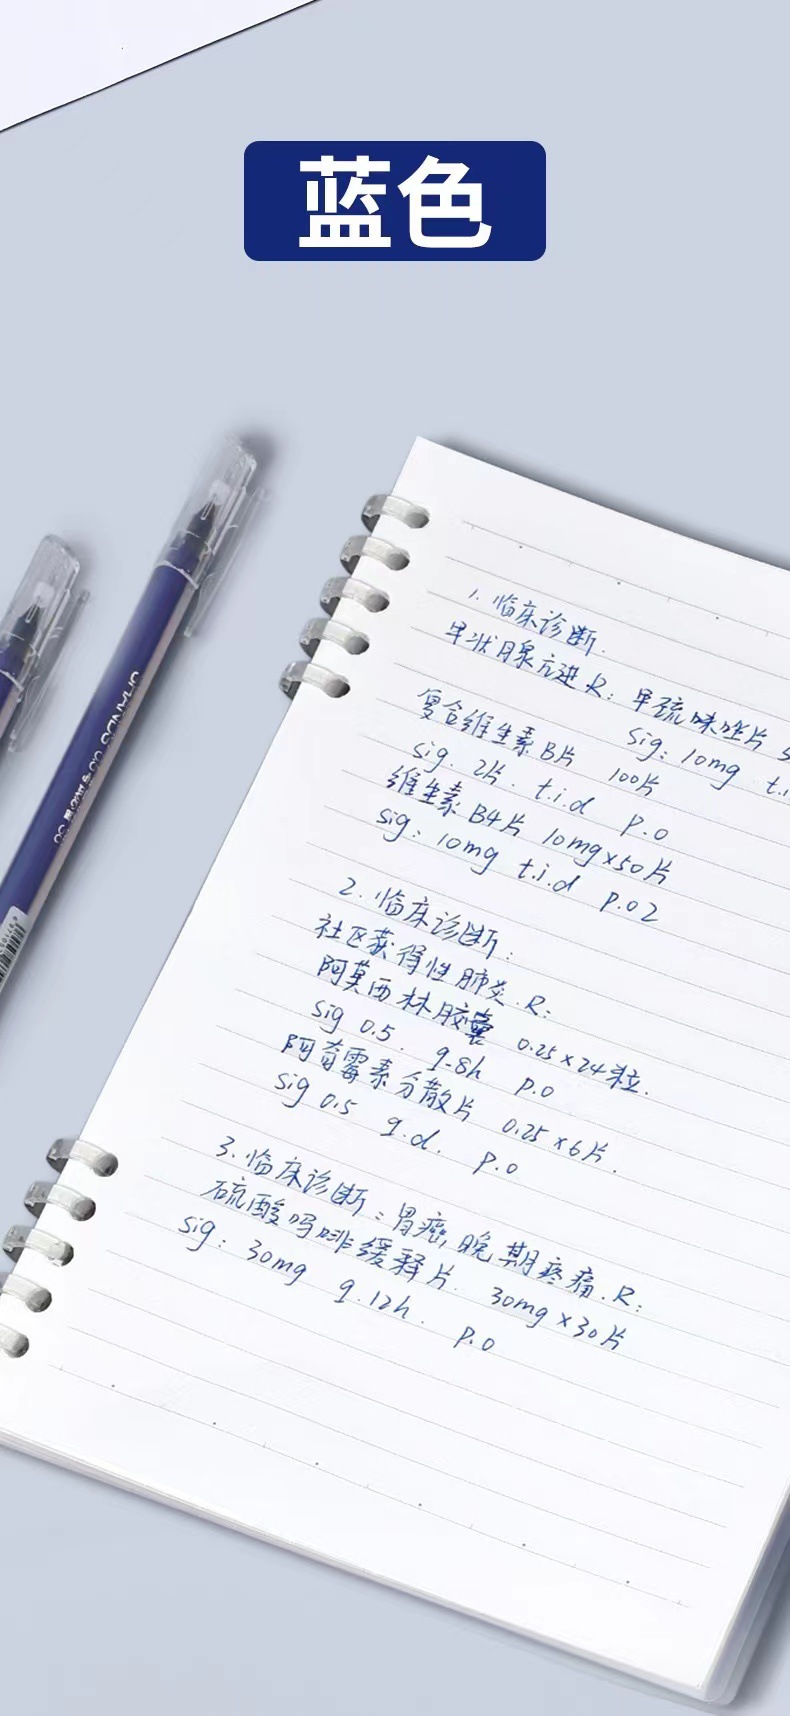 蓝色
1. 临床诊断.
甲状腺亢进 R: 甲巯咪唑片 5
sig: 10mg t.i.
复合维生素B片 100片
sig. 2片. t.i.d P.O
维生素B4片 10mg×50片
sig: 10mg t.i.d P.O2
2. 临床诊断:
社区获得性肺炎. R:
阿莫西林胶囊 0.25×24粒.
sig 0.5. q.8h P.O
阿奇霉素分散片 0.25×6片.
sig 0.5 q.d. P.O
3. 临床诊断: 胃癌, 晚期疼痛. R:
硫酸吗啡缓释片. 30mg×30片
sig: 30mg q.12h. P.O